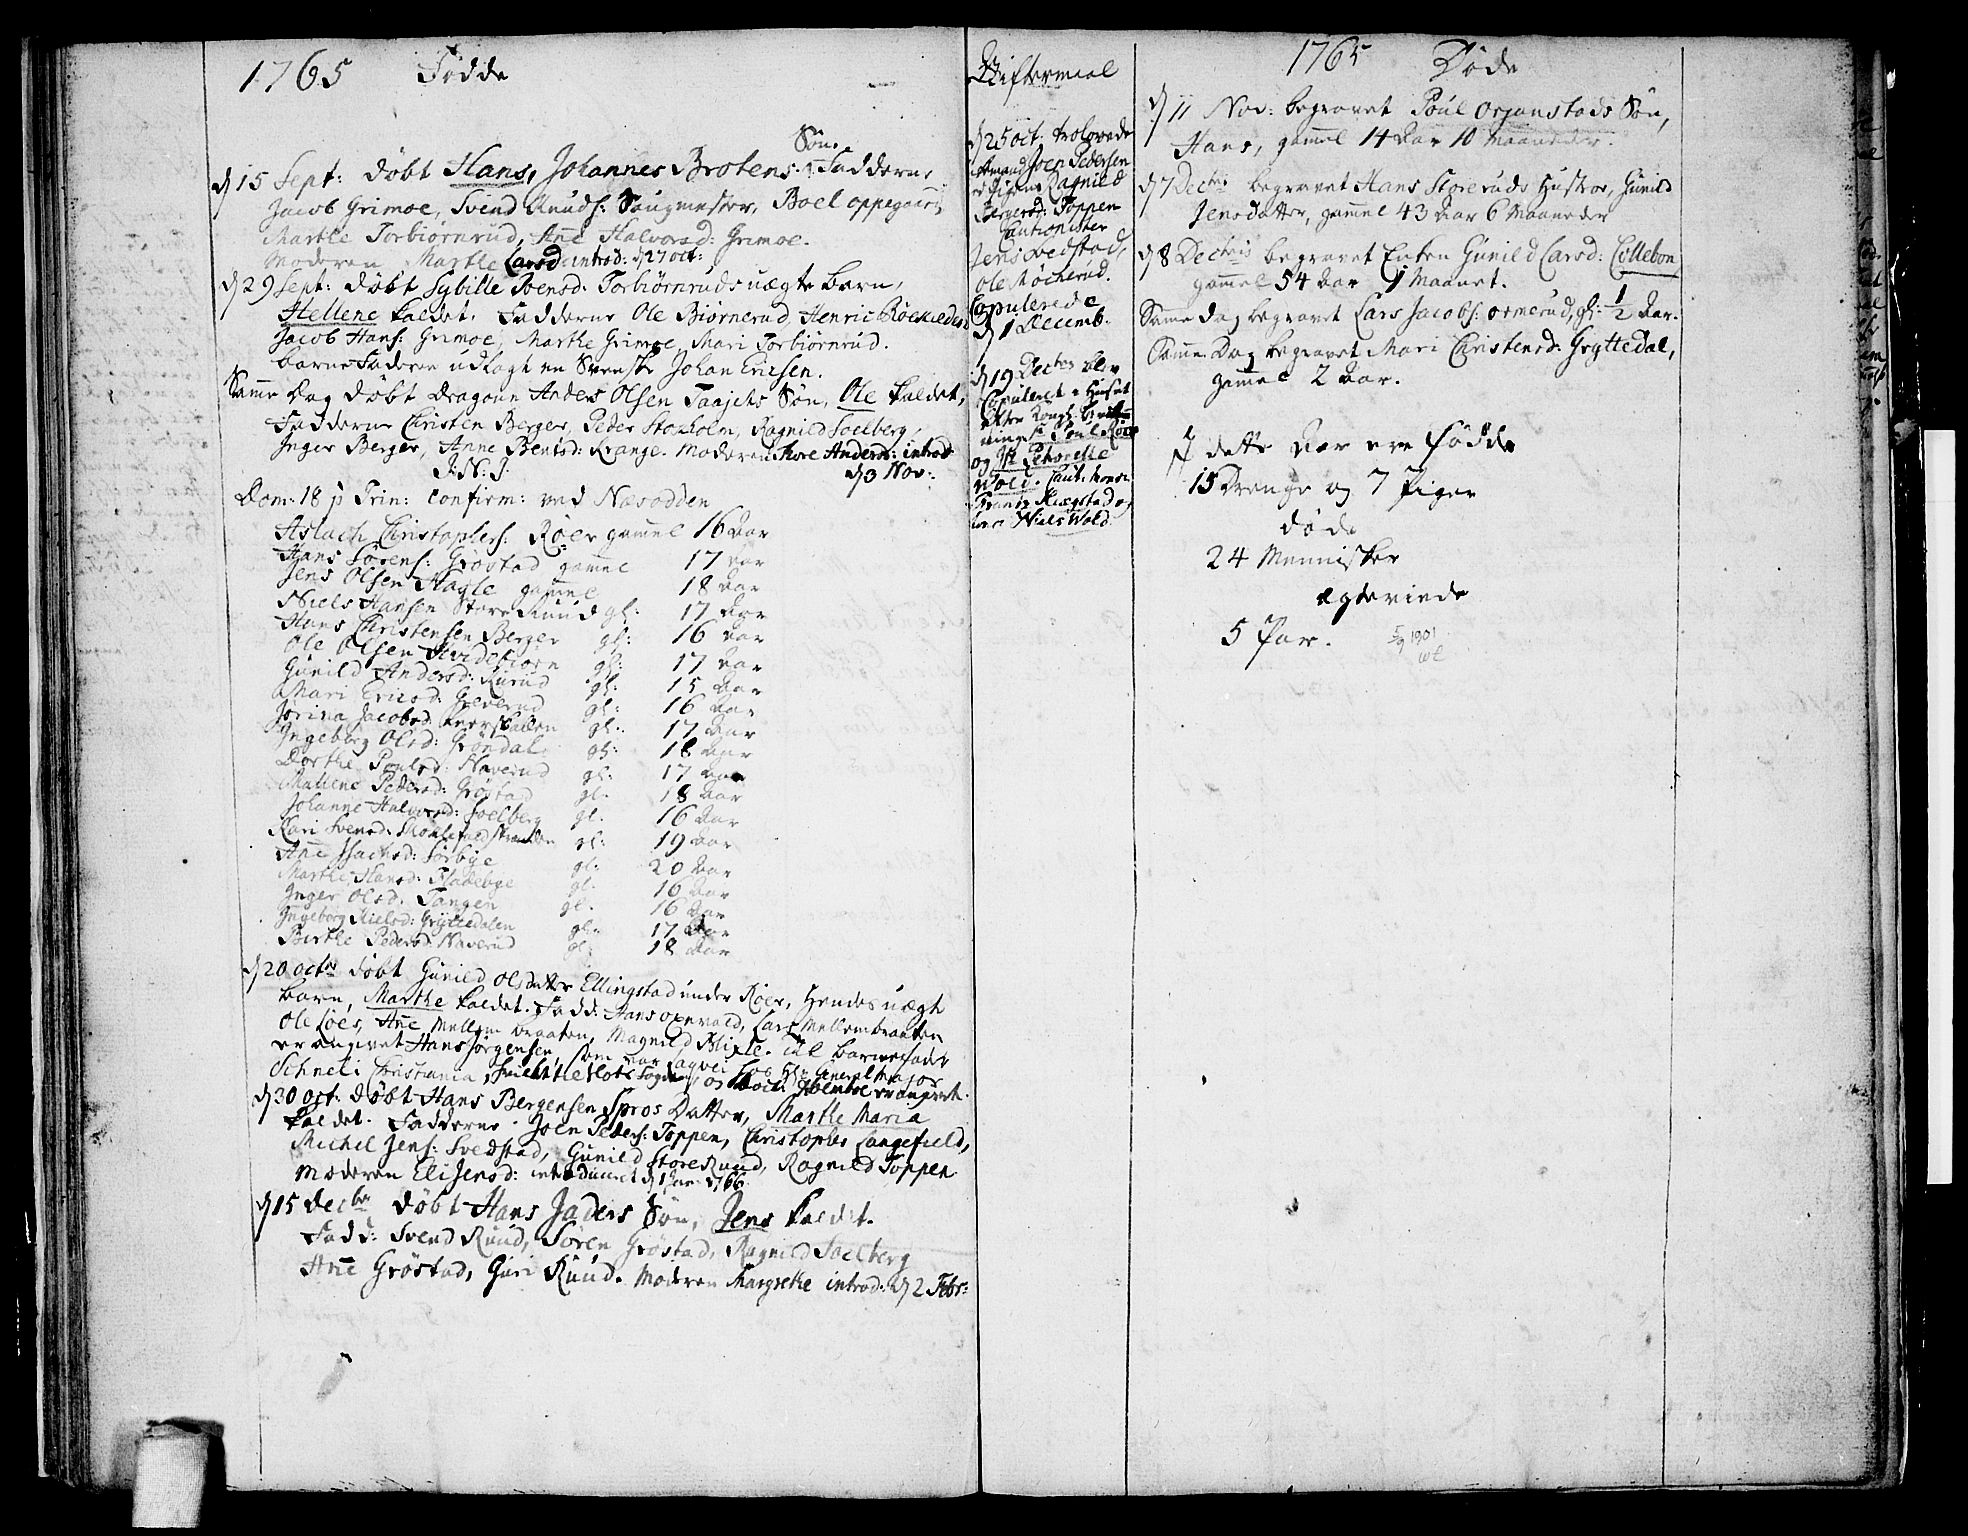 1765 Fødde
Søn.
d 15 Sept: døbt Hans, Johannes Brotens Fadderne
Jacob Grimoe, Svend Ruuds: Saugmester, Boel oppegaard,
Marthe Torbiørnrud, Añe Halvorsd: Grimoe.
Moderen Marthe Larsd: introd: d 27 oct:
d 29 Sept: døbt Sybille Svensd: Torbiørnruds uægte barn,
Hellene kaldet. Fadderne Ole Biørnerud, Henric
Jacob Hans: Grimoe, Marthe Grimoe, Mari Torbiørnrud.
barne Faderen udlagt en Svensk Johan Ericsen.
Samme Dag døbt Dragoun Anders Olsen Søn, Ole kaldet,
Fadderne Christen Berger, Peder Stokholm, Ragnild Soelberg,
Inger Berger, Anne Bentsd: Krange. Moderen Thore Andersd: introd:
d 3 Nov:
J: N: J:
Dom: 18 p Trin: confirm: ved Næsodden
Aslach Christophers: Røer gamel 16 aar
Hans Sørens: Grøstad gamel 17 aar
Jens Olsen Hagle gamel 18 aar
Niels Hansen Store Ruud gl: 17 aar
Hans Christensen Berger gl: 16 aar
Ole Olsen Hvidebiørn gl: 17 aar
Gunild Andersd: Rurud gl: 15 aar
Mari Ericsd: Greverud gl: 16 aar
Jørina Jacobsd: gl: 17 aar
Ingeborg Olsd: Grøndal gl: 18 aar
Dorthe Poulsd: Haverud gl: 17 aar
Mallene Pedersd: Grøstad gl: 18 aar
Johanne Halvorsd: Soelberg gl: 16 aar
Kari Svensd: gl: 19 aar
Añe Isachsd: Sørbye gl: 20 aar
Marthe Hansd: Fladebye gl: 16 aar
Inger Olsd: Tangen gl: 16 aar
Ingeborg Nielsd: Gryttedalen gl: 17 aar
Birthe Pedersd: Haverud gl: 18 aar
d 20 octbr døbt Gunild Olsdatter Ellingstad under Røer, Hendes uægt
barn, Marthe kaldet. Fadd: Hans oxevald, Lars Mellembraaten
Ole Løes, Añe Mellem braaten, Magnild Blixle. Til barnefader
er angivet Hans Jørgensen, som var Laqvei hos Hr General Major
Schneli Christiania,
d 30 oct: døbt Hans Bergensen Spros Datter, Marthe Maria
kaldet. Fadderne Joen Peders: Toppen, Christopher Langefield,
Michel Jens: Svedstad, Gunild Store Ruud, Ragnild Toppen
Moderen Eli Jensd: introduceret d 1 Jan: 1766.
d 15 decbr døbt Hans Jaders Søn, Jens kaldet.
Fadd: Svend Ruud, Søren Grøstad, Ragnild Soelberg
Añe Grøstad, Guri Ruud. Moderen Margrethe introd: d 2 Febr:
Giftermaal
d 25 oct: trolovede
Joen Pedersen
Pigen Ragnild
Toppen
Cautionister
Jens Svedstad,
Ole Møcherud.
Copulerede
d 1 Decemb:
d 19 Decbris blev
Copuleret i Huset
efter Kongl: bevil
ning Sr Poul Røer
og
Wold. Caut: Mons:
Frantz og
Niels Wold.
1765 Døde
d 11 Nov: begravet Poul Orjanstads Søn,
Hans, gamel 14 aar 10 Maaneder.
d 7 Decbris begravet Hans Storeruds Hustroe, Gunild
Jensdatter, gamel 43 aar 6 Maaneder
d 8 Decbris begravet Enken Gunild Larsd: Collebon,
gamel 54 aar 1 Maanet.
Same dag begravet Lars Jacobs: ormerud, gl: ½ aar.
Same Dag begravet Mari Christensd: Gryttedal,
gamel 2 aar.
I dette Aar ere Fødde
15 Drenge og 7 Piger
døde
24 Mennisker
ægteviede
5 Par.
5/9 1901